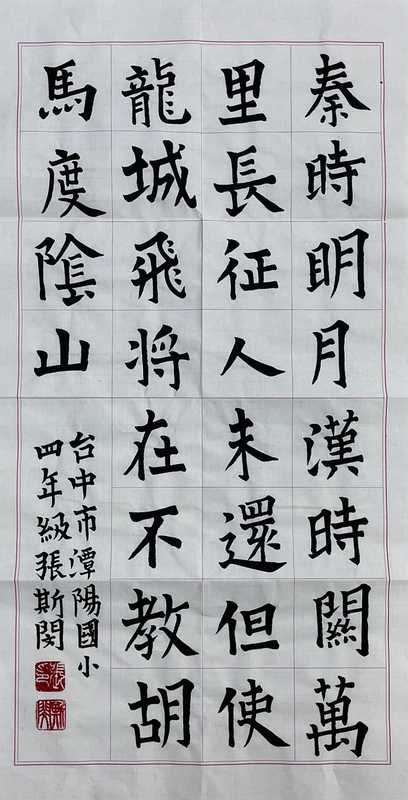 秦時明月漢時關萬
里長征人未還但使
龍城飛將在不教胡
馬度陰山
台中市潭陽國小
四年級張斯閔